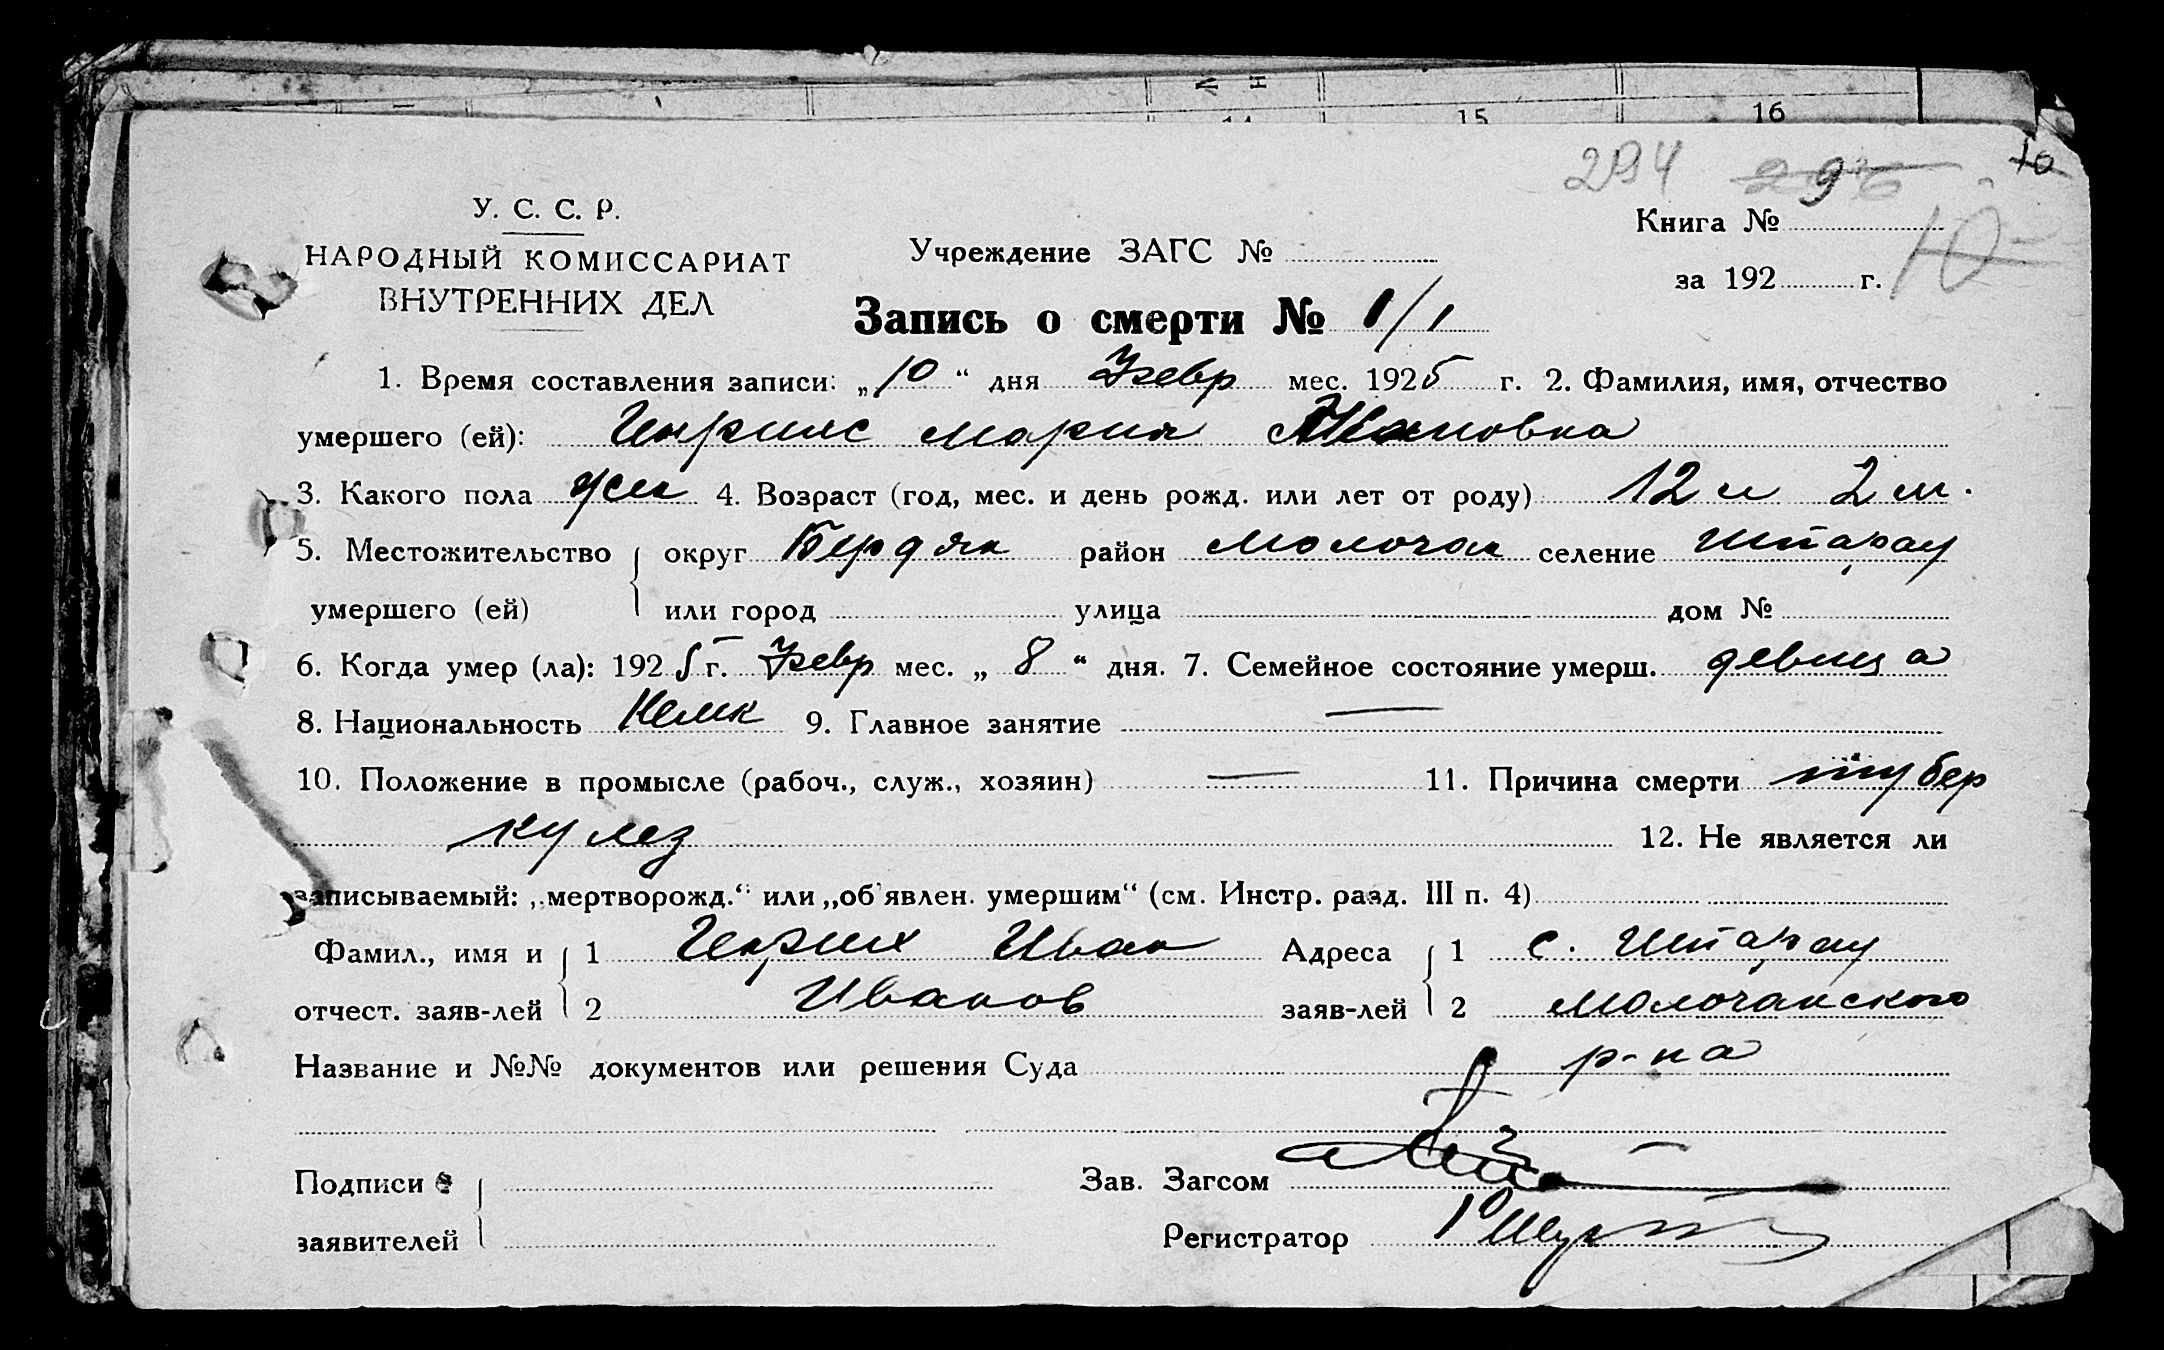 14 15 16
294 296 10
У. С. С. Р.
НАРОДНЫЙ КОМИССАРИАТ
ВНУТРЕННИХ ДЕЛ
Учреждение ЗАГС №
Книга №
за 192 г.
Запись о смерти № 1/1
1. Время составления записи: „10“ дня Февр мес. 1925 г. 2. Фамилия, имя, отчество
умершего (ей): Мария Ивановна
3. Какого пола жен 4. Возраст (год, мес. и день рожд. или лет от роду) 12 л 2 м.
5. Местожительство округ Бердян район Молочан селение Шпарау
умершего (ей) или город улица дом №
6. Когда умер (ла): 1925 г. Февр мес. „8“ дня. 7. Семейное состояние умерш. девица
8. Национальность Немк 9. Главное занятие —
10. Положение в промысле (рабоч., служ., хозяин) — 11. Причина смерти тубер
кулез 12. Не является ли
записываемый: „мертворожд.“ или „об'явлен. умершим“ (см. Инстр. разд. III п. 4)
Фамил., имя и 1 Генрих Иван Адреса 1 с. Шпарау
отчест. заяв-лей 2 Иванов заяв-лей 2 Молочанского
Название и №№ документов или решения Суда р-на
Подписи Зав. Загсом
заявителей Регистратор